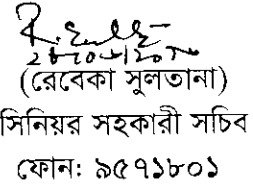 (রেবেকা সুলতানা)
সিনিয়র সহকারী সচিব
ফোন: ৯৫৭১৮০১